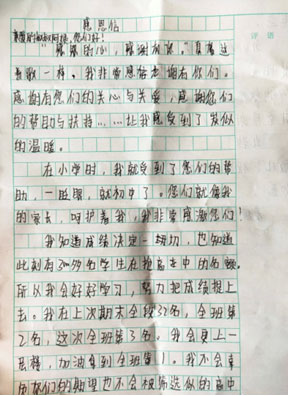 感恩信
亲爱的叔叔阿姨，您们好！
"感恩的心，感谢有您。"真像这
首歌一样。我非常感谢有你们。
感谢有您们的关心与关爱，感谢您们
的帮助与扶持……让我感受到了
的温暖。
在小学时，我就受到了您们的帮
助，一眨眼，就初中了。您们就像我
的家长，呵护着我，我非常感激您们！
我知道成绩决定一切，也知道
此刻有 多名学生在 高中的名额。
所以我会好好学习，努力把成绩提上
去。我在上次期末全段32名，全班第
2名，这次全班第3名。我会更上一
层楼，加油拿到全班第1。我不会辜
负你们的期望也不会 高中
评语